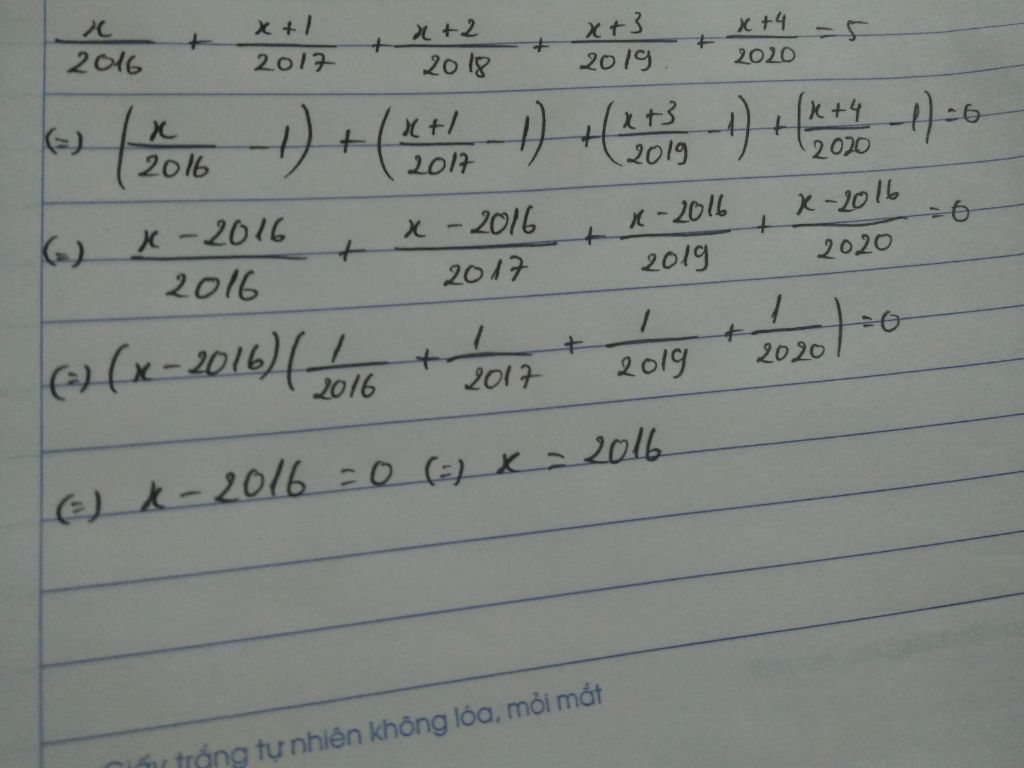 x/2016 + x+1/2017 + x+2/2018 + x+3/2019 + x+4/2020 = 5
(=) (x/2016 - 1) + (x+1/2017 - 1) + (x+3/2019 - 1) + (x+4/2020 - 1) = 0
(=) x - 2016/2016 + x - 2016/2017 + x - 2016/2019 + x - 2016/2020 = 0
(=) (x - 2016) (1/2016 + 1/2017 + 1/2019 + 1/2020) = 0
(=) x - 2016 = 0 (=) x = 2016
Giấy trắng tự nhiên không lóa, mỏi mắt